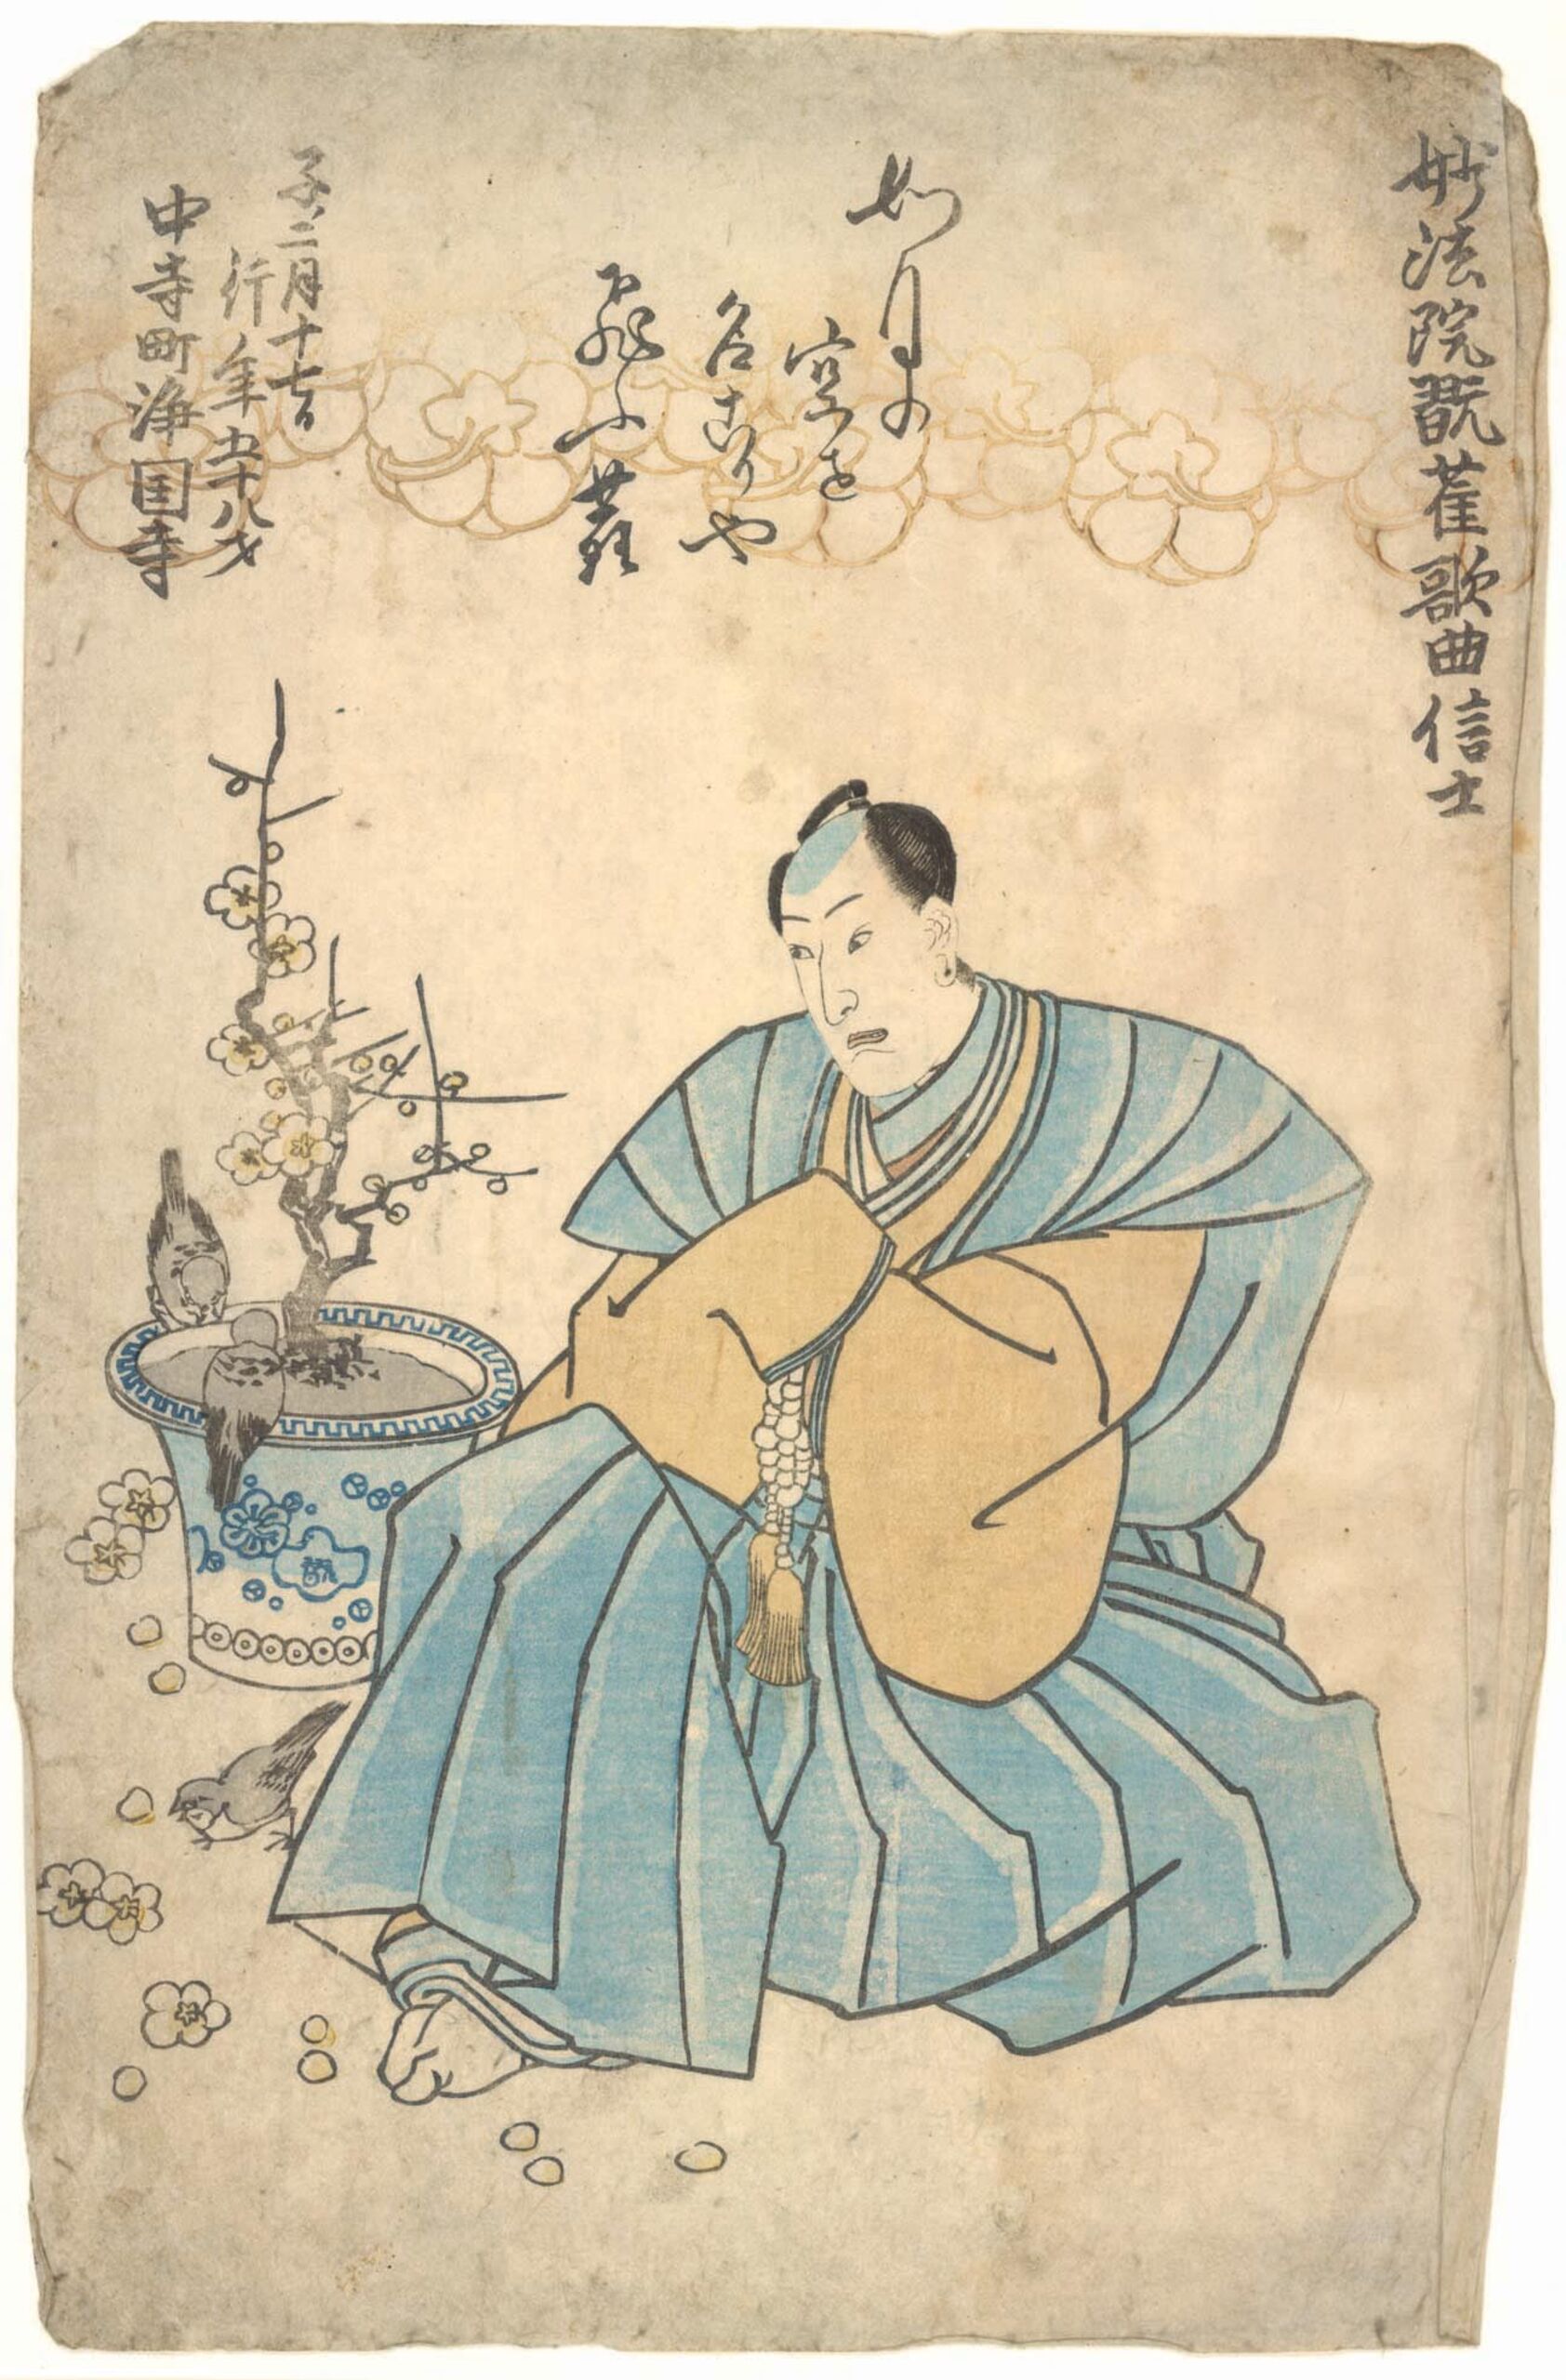 妙法院翫雀歌曲信士
如月の
空を
名こりや
子ノ二月十七日
行年五十八才
中寺町浄国寺